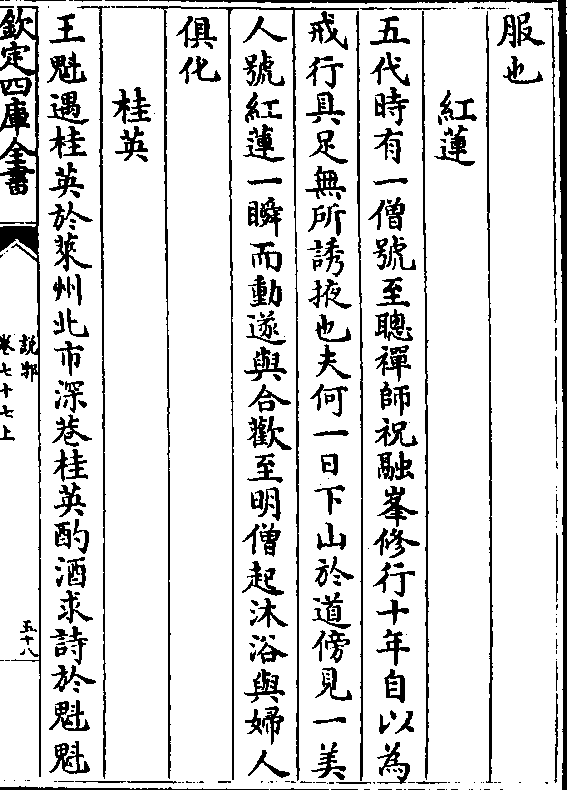 服也
紅蓮
五代時有一僧號至聰禪師祝融峯修行十年自以為
戒行具足無所誘掖也夫何一日下山於道傍見一美
人號紅蓮一瞬而動遂與合歡至明僧起沐浴與婦人
俱化
桂英
王魁遇桂英於萊州北市深巷桂英酌酒求詩於魁魁
欽定四庫全書
説郛
卷七十七上
五十八